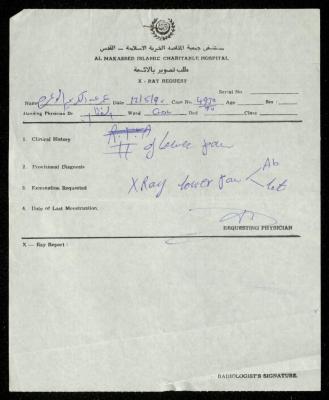 مستشفى جمعية المقاصد الخيرية الاسلامية — القدس
AL MAKASSED ISLAMIC CHARITABLE HOSPITAL
طلب تصوير بالاشعة
X - RAY REQUEST
Serial No.
Name Date Case No. Age Sex
Attending Physician Dr. Ward Bed Class
1. Clinical History
# of lower jaw
2. Provisional Diagnosis
3. Examination Requested X Ray lower jaw
4. Date of Last Menstruation.
REQUESTING PHYSICIAN
X — Ray Report :
RADIOLOGIST'S SIGNATURE.